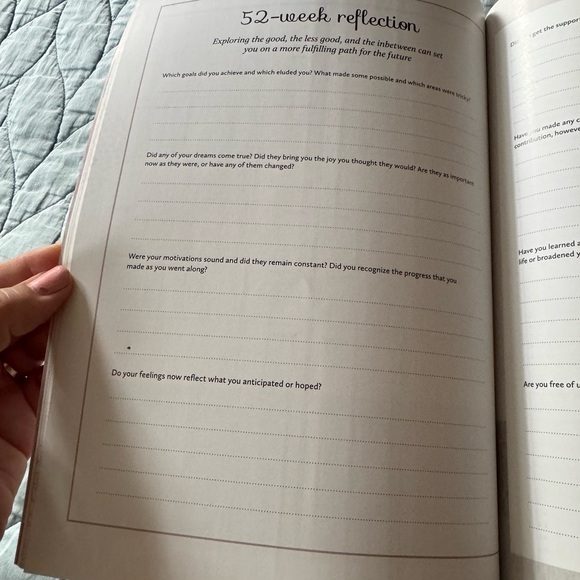 52-week reflection
Exploring the good, the less good, and the inbetween can set
you on a more fulfilling path for the future
Which goals did you achieve and which eluded you? What made some possible and which areas were tricky?
Did any of your dreams come true? Did they bring you the joy you thought they would? Are they as important
now as they were, or have any of them changed?
Were your motivations sound and did they remain constant? Did you recognize the progress that you
made as you went along?
Do your feelings now reflect what you anticipated or hoped?
get the support
Have you made any
contribution, howeve
Have you learned a
life or broadened y
Are you free of u